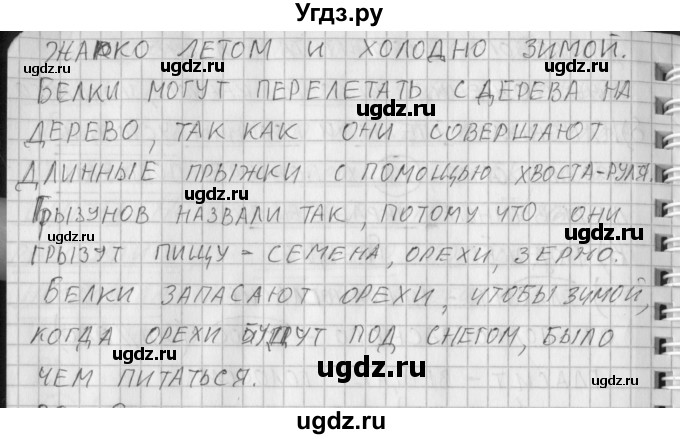 Угдз.ру
ЖАРКО ЛЕТОМ И ХОЛОДНО ЗИМОЙ.
ugdz.ru ugdz.ru ugdz.ru
БЕЛКИ МОГУТ ПЕРЕЛЕТАТЬ С ДЕРЕВА НА
ugdz.ru
ДЕРЕВО, ТАК КАК ОНИ СОВЕРШАЮТ
ДЛИННЫЕ ПРЫЖКИ С ПОМОЩЬЮ ХВОСТА-РУЛЯ.
ugdz.ru ugdz.ru
ГРЫЗУНОВ НАЗВАЛИ ТАК, ПОТОМУ ЧТО ОНИ
ugdz.ru
ГРЫЗУТ ПИЩУ - СЕМЕНА, ОРЕХИ, ЗЕРНО.
ugdz.ru
БЕЛКИ ЗАПАСАЮТ ОРЕХИ, ЧТОБЫ ЗИМОЙ,
КОГДА ОРЕХИ БУДУТ ПОД СНЕГОМ, БЫЛО
ugdz.ru ugdz.ru
ЧЕМ ПИТАТЬСЯ.
ugdz.ru
ugdz.ru ugdz.ru
ugdz.ru